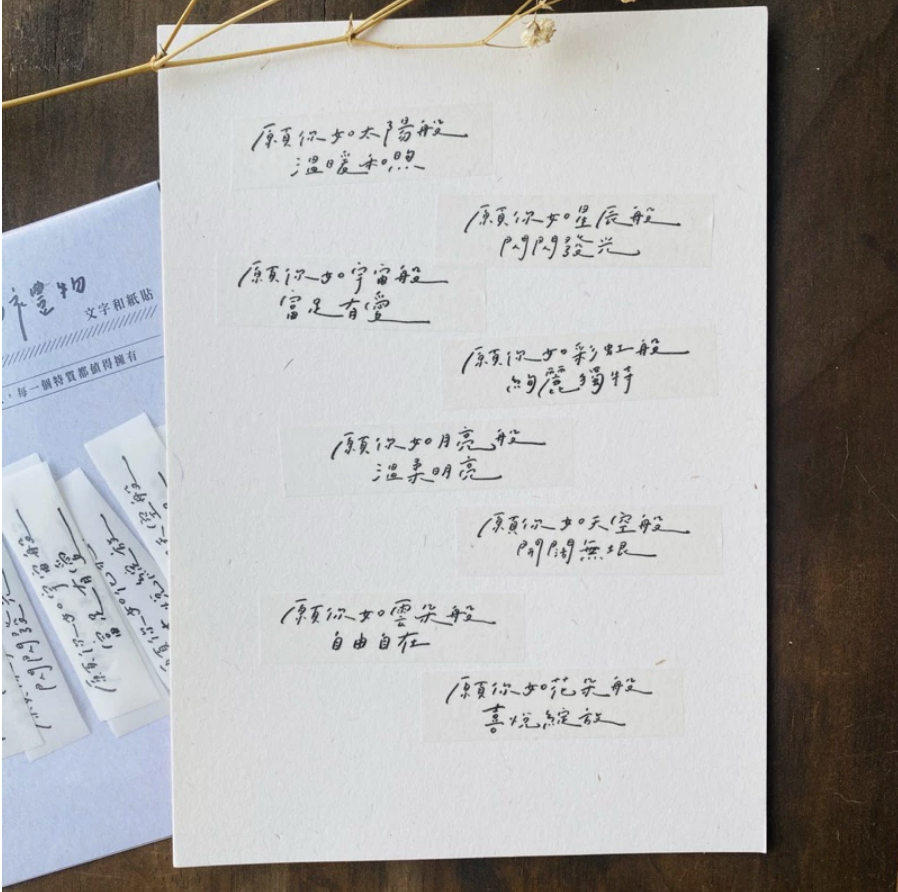 願你如太陽般
溫暖和照
願你如星辰般
閃閃發光
願你如宇宙般
富足有愛
願你如彩虹般
絢麗獨特
願你如月亮般
溫柔明亮
願你如天空般
開闊無垠
願你如雲朵般
自由自在
願你如花朵般
喜悅綻放
禮物
文字和紙貼
，每一個特質都值得擁有